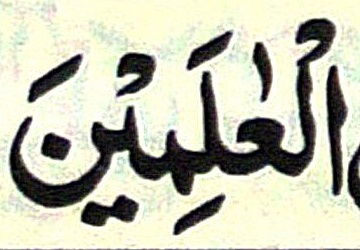 الْعٰلَمِيْنَ